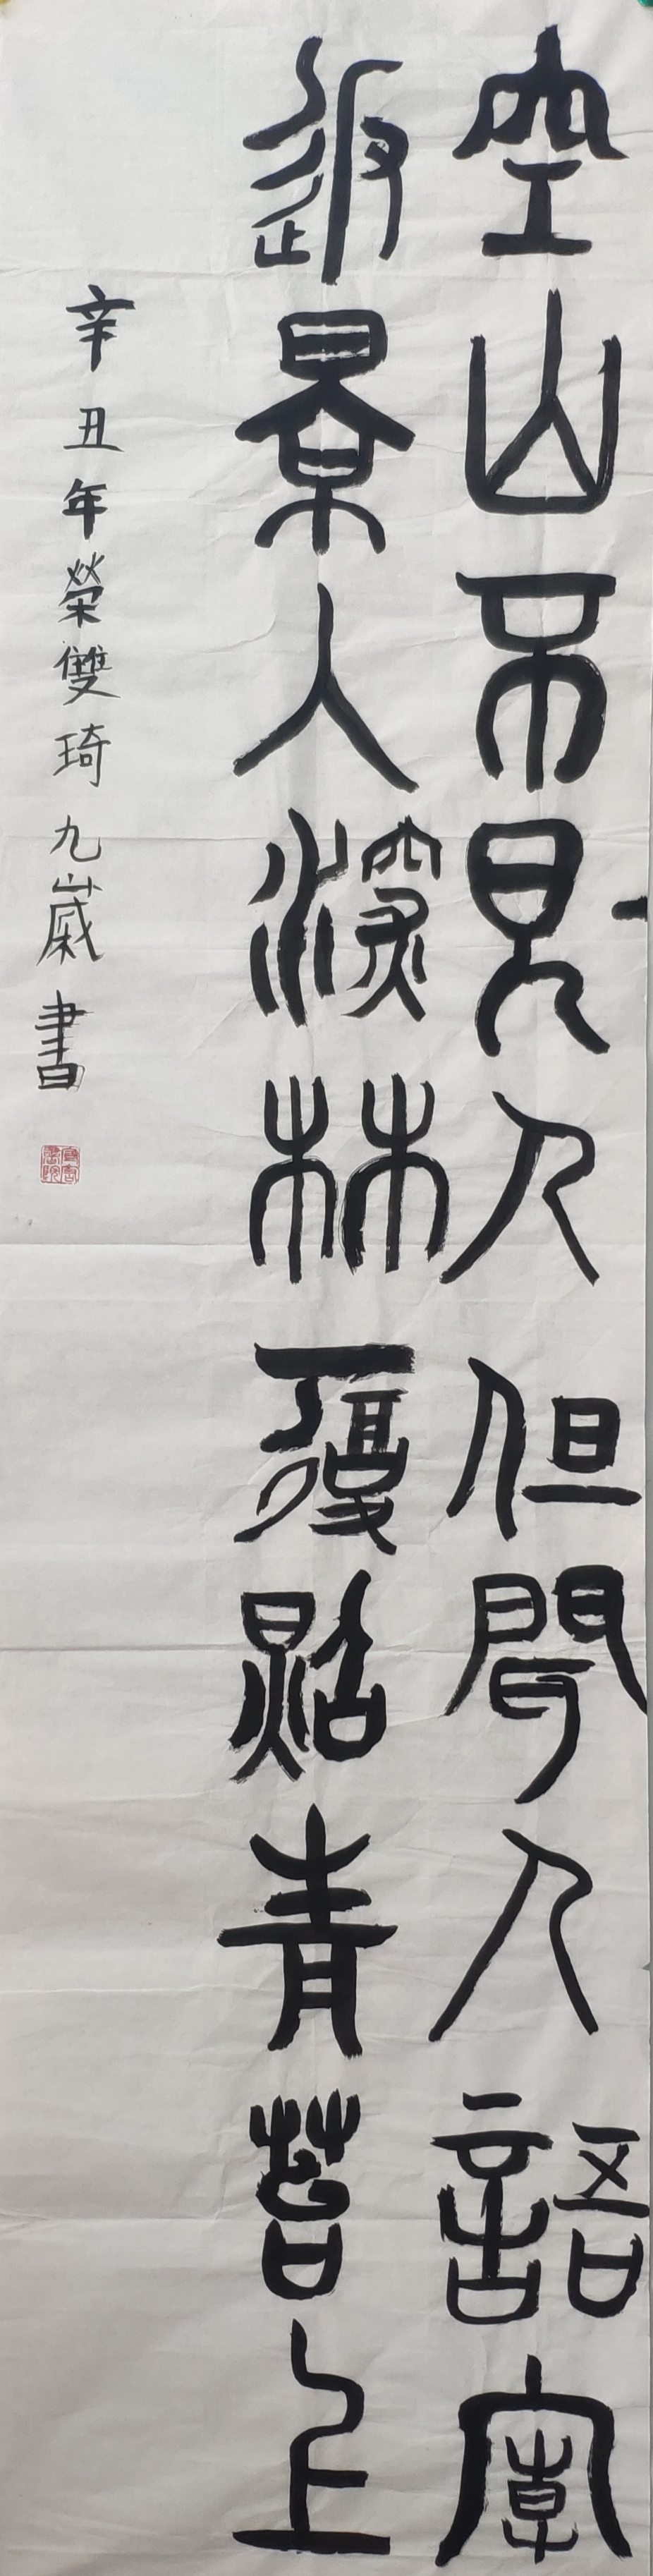 空山不見人但聞人語響
返景入深林復照青苔上
辛丑年榮雙琦九歲書